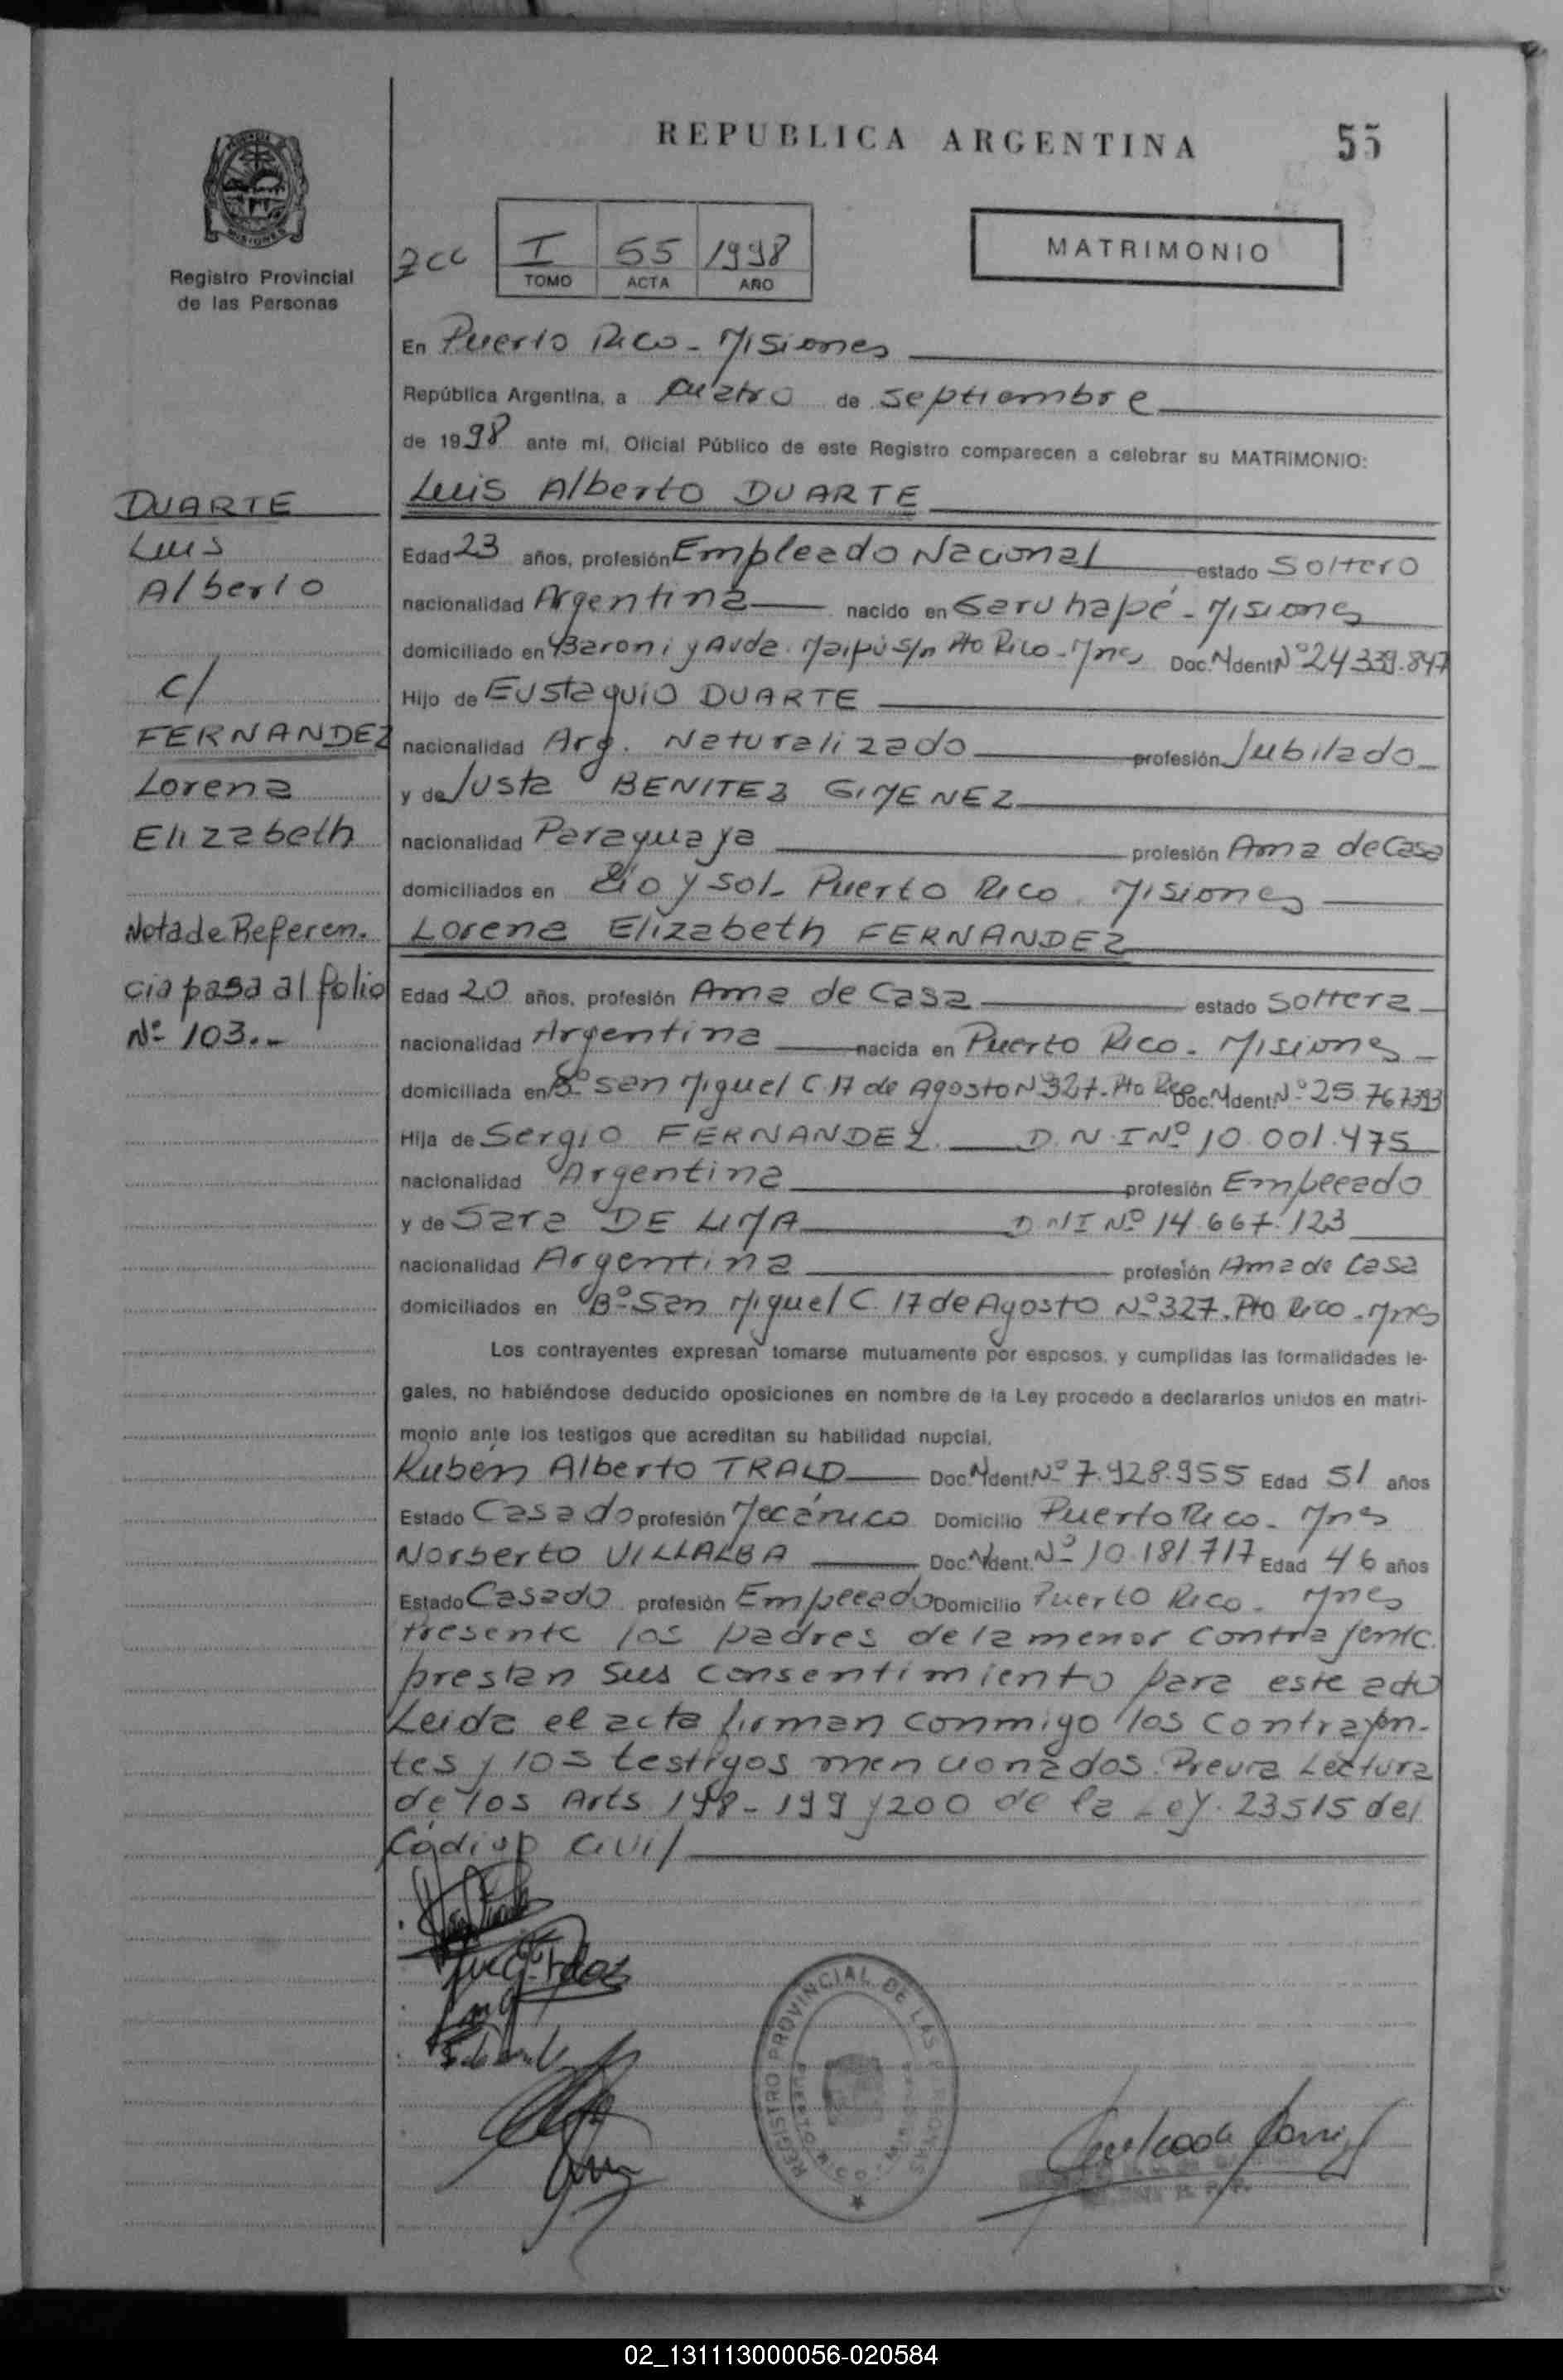 REPUBLICA ARGENTINA
55
Registro Provincial
de las Personas
I 55 1998
TOMO ACTA AÑO
MATRIMONIO
En Puerto Rico - Misiones
República Argentina, a cuatro de septiembre
de 1998 ante mí, Oficial Público de este Registro comparecen a celebrar su MATRIMONIO:
Luis Alberto DUARTE
Edad 23 años, profesión Empleado Nacional estado Soltero
nacionalidad Argentina nacido en Garuhapé - Misiones
domiciliado en Baroni y Avda. Maipú s/n Pto Rico - Mnes Doc. Ident. Nº 24.339.847
Hijo de Eustaquio DUARTE
nacionalidad Arg. Naturalizado profesión Jubilado
y de Justa BENITEZ GIMENEZ
nacionalidad Paraguaya profesión Ama de Casa
domiciliados en y Sol - Puerto Rico. Misiones
Lorena Elizabeth FERNANDEZ
Edad 20 años, profesión Ama de Casa estado Soltera
nacionalidad Argentina nacida en Puerto Rico - Misiones
domiciliada en Bº San Miguel C. 17 de Agosto Nº 327. Pto Rico Doc. N Ident. Nº 25.767393
Hija de Sergio FERNANDEZ. D.N.I Nº 10.001.475
nacionalidad Argentina profesión Empleado
y de Sara DE LIMA D.N.I Nº 14.667.123
nacionalidad Argentina profesión Ama de Casa
domiciliados en Bº San Miguel C. 17 de Agosto Nº 327. Pto Rico - Mnes
Los contrayentes expresan tomarse mutuamente por esposos, y cumplidas las formalidades le-
gales, no habiéndose deducido oposiciones en nombre de la Ley procedo a declararlos unidos en matri-
monio ante los testigos que acreditan su habilidad nupcial,
Ruben Alberto TRALD Doc. N Ident. Nº 7.928.955 Edad 51 años
Estado Casado profesión Mecánico Domicilio Puerto Rico - Mnes
Norberto VILLALBA Doc. N Ident. Nº 10.181.717 Edad 46 años
Estado Casado profesión Empleado Domicilio Puerto Rico - Mnes
Presente los padres de la menor contrayente.
prestan sus consentimiento para este acto
Leida el acta firman conmigo los contrayen-
tes y los testigos mencionados. Previa Lectura
de los Arts 198 - 199 y 200 de la Ley. 23515 del
Código Civil
DUARTE
Luis
Alberto
c/
FERNANDEZ
Lorena
Elizabeth
Nota de Referen.
cia pasa al folio
Nº 103.-
REGISTRO PROVINCIAL DE LAS PERSONAS
PUERTO RICO - MISIONES
02_131113000056-020584